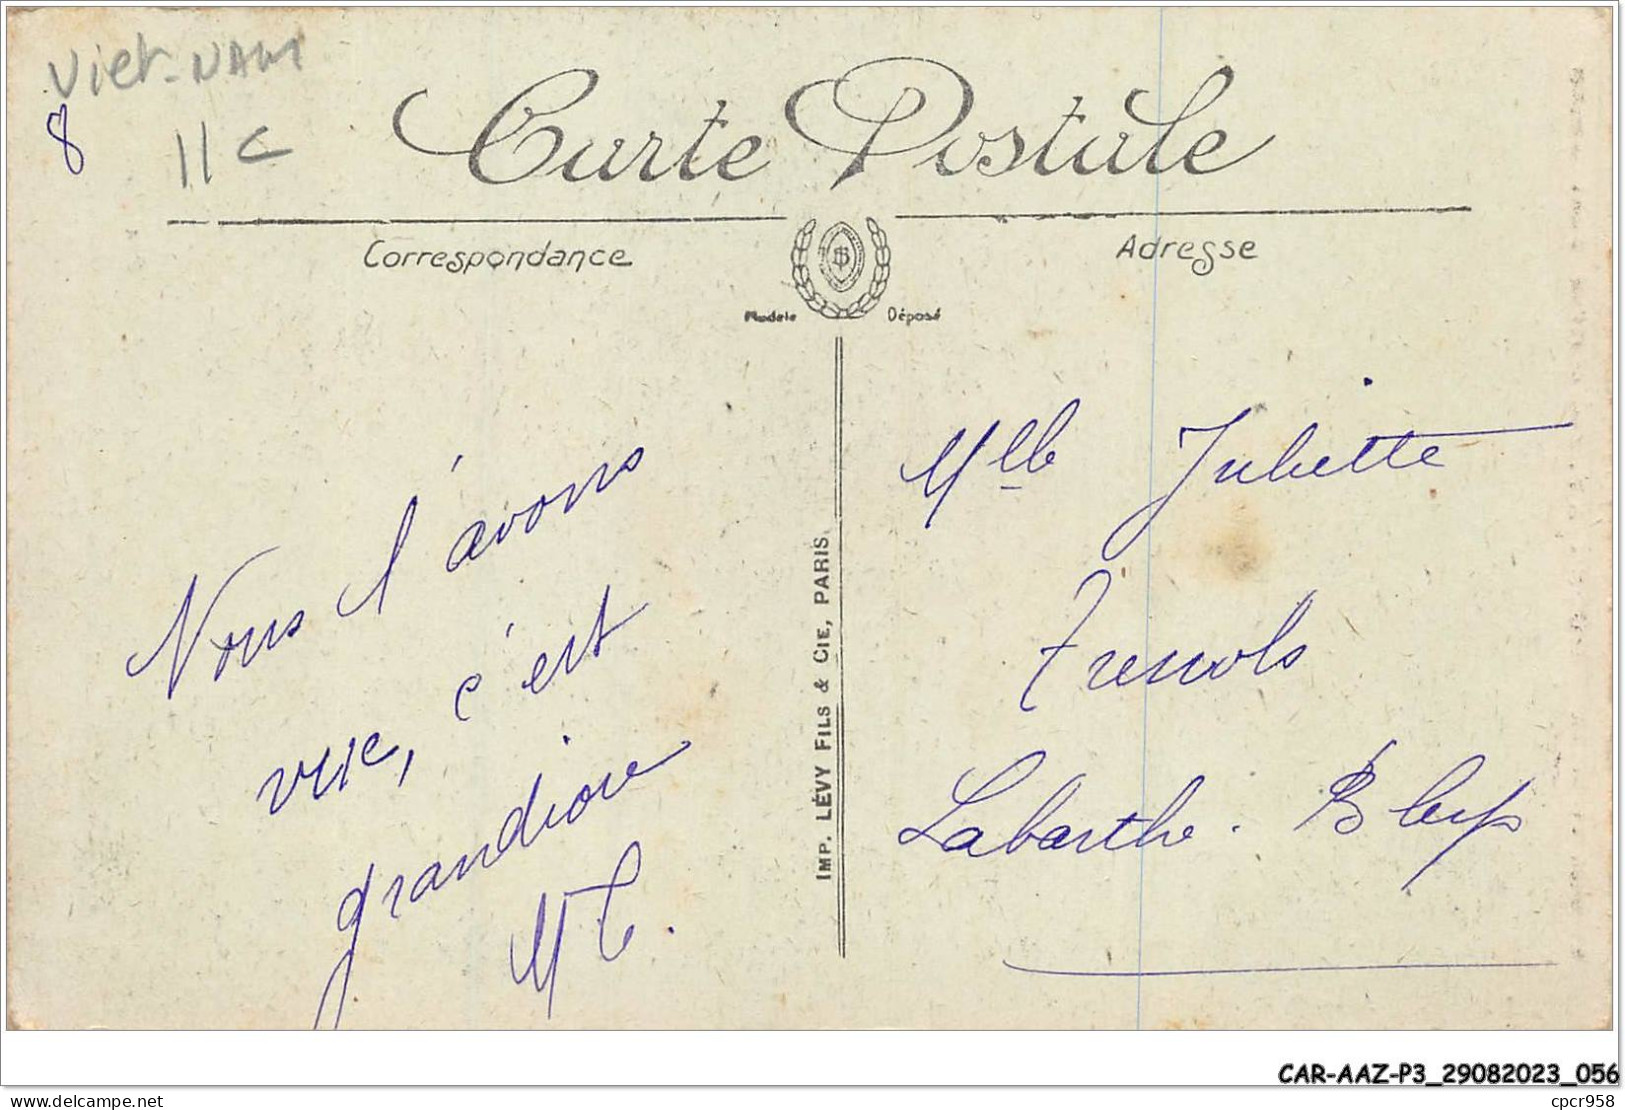 Viet-NAM
8
11 c
Carte Postale
Correspondance
Adresse
Modèle Déposé
Nous l'avons
vue, c'est
grandiose
IMP. LÉVY FILS & CIE, PARIS
Mlle Juliette
Labarthe.
CAR-AAZ-P3_29082023_056
delcampe.net
cpcr958